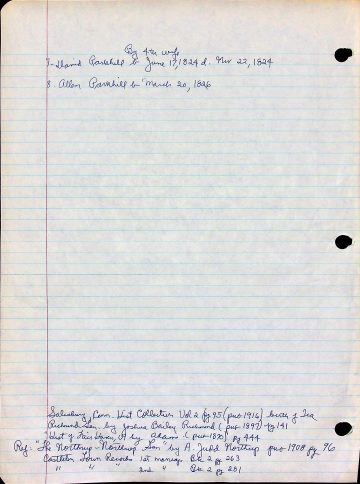 By 4th wife
7- David Parkhill b June 17, 1824 d. Nov 22, 1824
8. Allen Parkhill b March 20, 1826
Salisbury, Conn. Hist Collection Vol 2 pg 95 (pub 1916) of Ira
Richmond Gen. by Joshua Bailey Richmond (pub 1897) pg 191
Hist of Fair Haven, Vt by Adams (pub 1870) pg 444
Ref. "The Northrup-Northrop Gen" by A. Judd Northrup pub 1908 pg 96
Castleton Town Records 1st marriage Bk 2 pg 263
" " " 2nd " Bk 2 pg 281